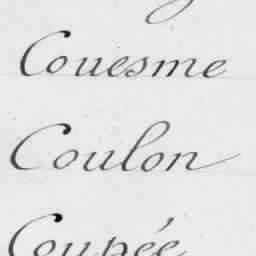 Couesme
Coulon
Coupée